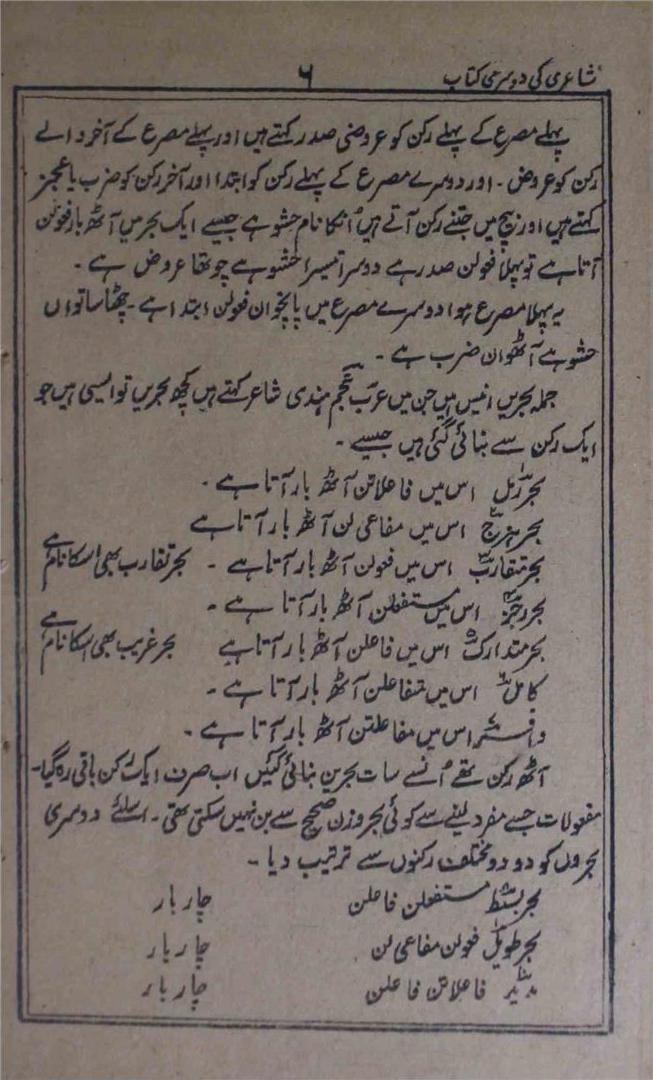 شاعری کی دوسری کتاب
۶
پہلے مصرع کے پہلے رکن کو عروضی صدر کہتے ہیں اور پہلے مصرع کے آخر والے
رکن کو عروض ۔ اور دوسرے مصرع کے پہلے رکن کو ابتدا اور آخر رکن کو ضرب یا عجز
کہتے ہیں اور بیچ میں جتنے رکن آتے ہیں اُنکا نام حشو ہے جیسے ایک بحر میں آٹھ بار فعولن
آتا ہے تو پہلا فعولن صدر ہے دوسرا تیسرا حشو ہے چوتھا عروض ہے ۔
یہ پہلا مصرع ہوا دوسرے مصرع میں پانچواں فعولن ابتدا ہے ۔ چھٹا ساتواں
حشو ہے آٹھوان ضرب ہے ۔
جملہ بحریں انیس ہیں جن میں عرب عجم ہندی شاعر کہتے ہیں کچھ بحریں تو ایسی ہیں جو
ایک رکن سے بنائی گئی ہیں جیسے ۔
بحر رمل اس میں فاعلاتن آٹھ بار آتا ہے ۔
بحر ہزج اس میں مفاعی لن آٹھ بار آتا ہے
بحر متقارب اس میں فعولن آٹھ بار آتا ہے ۔ بحر تقارب بھی اسکا نام ہے
بحر رجز اس میں مستفعلن آٹھ بار آتا ہے ۔
بحر متدارک اس میں فاعلن آٹھ بار آتا ہے بحر غریب بھی اسکا نام ہے
کامل اس میں متفاعلن آٹھ بار آتا ہے ۔
وافر اس میں مفاعلتن آٹھ بار آتا ہے ۔
آٹھ رکن تھے اُنسے سات بحرین بنائی گئیں اب صرف ایک رکن باقی رہ گیا ۔
مفعولات جسے مفرد لینے سے کوئی بحر وزن صحیح سے بن نہیں سکتی تھی ۔ اسلئے دوسری
بحروں کو دو دو مختلف رکنوں سے ترتیب دیا ۔
بحر بسیط مستفعلن فاعلن چار بار
بحر طویل فعولن مفاعی لن چار بار
مدید فاعلاتن فاعلن چار بار